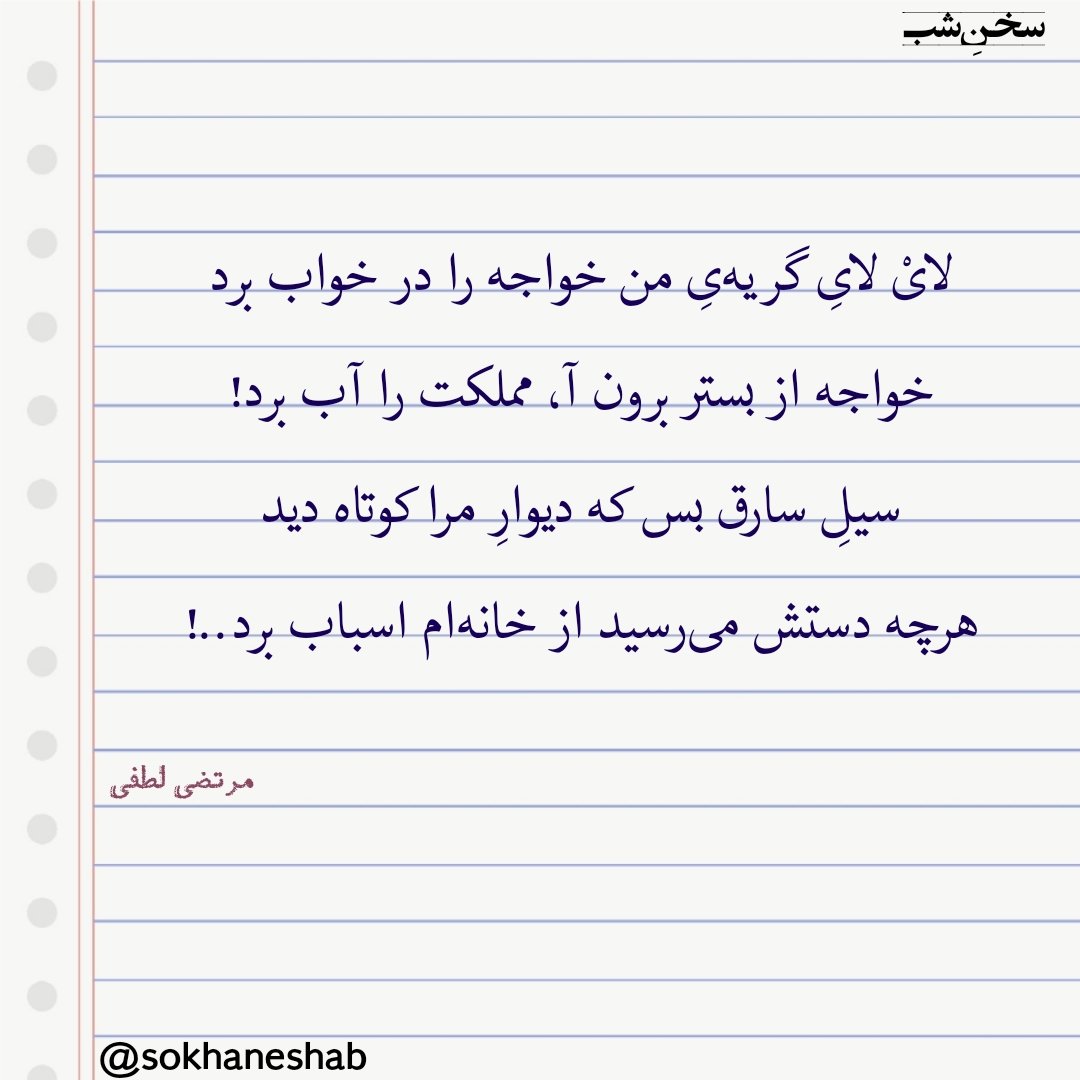 سخنِ‌شب
لایْ لایِ گریه‌یِ من خواجه را در خواب برد
خواجه از بستر برون آ، مملکت را آب برد!
سیلِ سارق بس که دیوارِ مرا کوتاه دید
هرچه دستش می‌رسید از خانه‌ام اسباب برد..!
مرتضی لطفی
@sokhaneshab